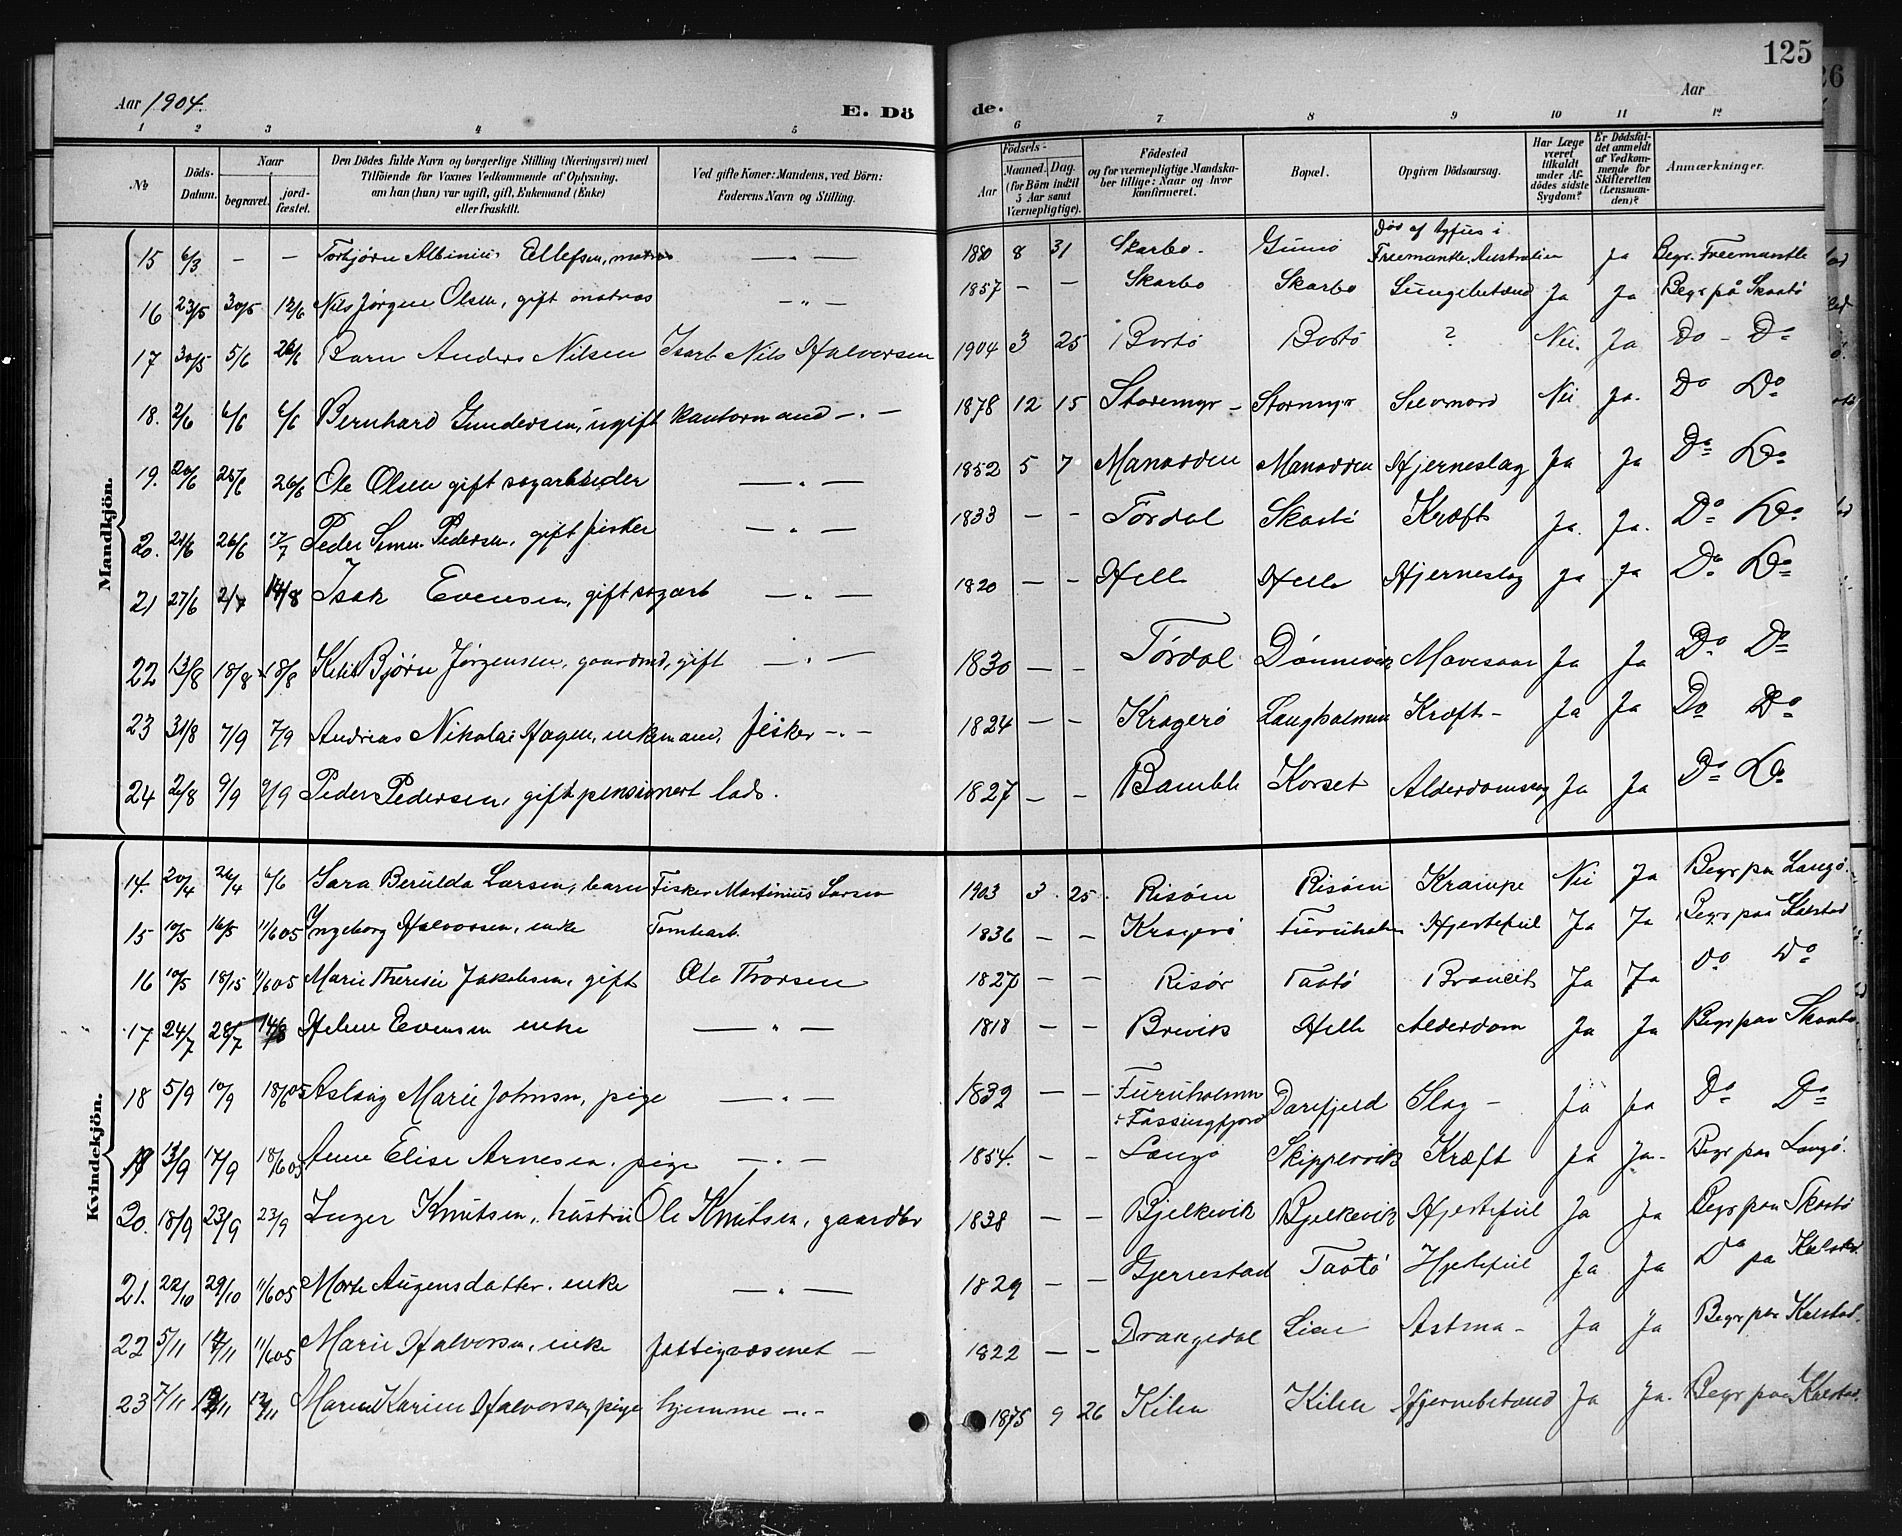 125
Aar 1904.
E. Dö de.
Aar
1 2 3 4 5 6 7 8 9 10 11 12
No
Döds-Datum.
Naar begravet. jordfæstet.
Den Dödes fulde Navn og borgerlige Stilling (Næringsvei) med Tilföiende for Voxnes Vedkommende af Oplysning, om han (hun) var ugift, gift, Enkemand (Enke) eller fraskilt.
Ved gifte Koner: Mandens, ved Börn: Faderens Navn og Stilling.
Födsels- Aar Maaned. Dag. (for Börn indtil 5 Aar samt Værnepligtige).
Födested og for værnepligtige Mandskaber tillige: Naar og hvor konfirmeret.
Bopæl.
Opgiven Dödsaarsag.
Har Læge været tilkaldt under Afdödes sidste Sygdom?
Er Dödsfaldet anmeldt af Vedkommende for Skifteretten (Lensmanden)?
Anmærkninger.
Mandkjön.
15 6/3 – – Torbjørn Albinius Ellefsen, matros – " – 1880 8 31 Skarbo. Gumø Død af tyfus i Freemantle, Australien Ja Begr. Freemantle
16 23/5 30/5 12/6 Nils Jørgen Olsen, gift matros – " – 1857 – – Skarbo Skarbo Lungebetænd Ja Ja Begr på Skaatø
17 30/5 5/6 26/6 Barn Anders Nilsen Isarb Nils Halvorsen 1904 3 25 Bortø Bortø ? Nei. Ja Do – Do
18. 2/6 6/6 6/6 Bernhard Gundersen, ugift kantormand – " – 1878 12 15 Storemyr – Stormyr Selvmord Nei Ja. Do Do
19. 20/6 25/6 26/6 Ole Olsen gift sagarbeider – " – 1852 5 7 Manodden Manodden Hjerneslag Ja Ja Do Do
20. 21/6 26/6 17/7 Peder Simu. Pedersen, gift fisker – " – 1833 – – Tordal Skaatø Kræft Ja. Ja. Do Do
21 27/6 2/7 14/8 Isak Evensen, gift sagarb – " – 1820 – – Helle Helle Hjerneslag Ja Ja Do Do
22 13/8 18/8 18/8 Ketil Bjørn Jørgensen, gaardmd, gift – " – 1830 – – Tørdal Dønnevik Mavesaar Ja Ja Do Do
23 31/8 7/9 7/9 Andreas Nikolai Hagen, enkemand, fisker – " – 1824 – – Kragerø Langholmen Kræft – Ja Ja Do Do
24 2/8 9/9 9/9 Peder Pedersen, gift pensionert lods. 1827 – – Bamble Korset Alderdomsslag Ja Ja Do Do
Kvindekjön.
14. 20/4 26/4 6/6 Sara Berulda Larsen, barn Fisker Martinius Larsen 1903 3 25. Risøen Risøen Krampe Nei Ja Begr paa Langø.
15 10/5 16/5 11/6 05 Yngeborg Halvorsen, enke Tomtearb. 1836 – – Kragerø Furuholm Hjertefeil Ja Ja Begr paa Kalstad
16 10/5 18/15 11/6 05 Marie Theresie Jakobsen, gift Ole Thorsen 1827 – – Risør Taatø Broncit Ja Ja Do Do
17 24/7 28/7 14/8 Helene Evensen enke – " – 1818 – – Brevik Helle Alderdom Ja Ja Begr paa Skaatø
18 5/9 10/9 18/6 05 Aslaug Marie Johnsen, pige – " – 1832 – – Furuholmen i Fossingfjord Darefjeld Slag – Ja Ja Do Do
19 13/9 17/9 18/6 05 Anne Elise Arnesen. pige – " – 1854. – – Langø Skippervik Kræft Ja Ja – Begr paa Langø.
20. 18/9 23/9 23/9 Inger Knutsen, hustru Ole Knutsen, gaardbr 1838 – – Bjelkevik Bjelkevik Hjertefeil Ja Ja Begr paa Skaatø
21. 22/10 29/10 11/6 05 Marte Augensdatter. enke – " – 1829 – – Gjerrestad Taatø Hjertefeil Ja Ja Do pa Kalstad.
22 5/11 12/11 11/6 05 Marie Halvorsen, enke fattigvæsenet – 1822 – – Drangedal Lien Astma – Ja Ja Begr paa Kalstad.
23 7/11 12/11 12/11 Maren Karine Halvorsen, pige hjemme – " – 1875 9 26 Kilen Kilen Hjernebetænd Ja Ja. Begr paa Kalstad.